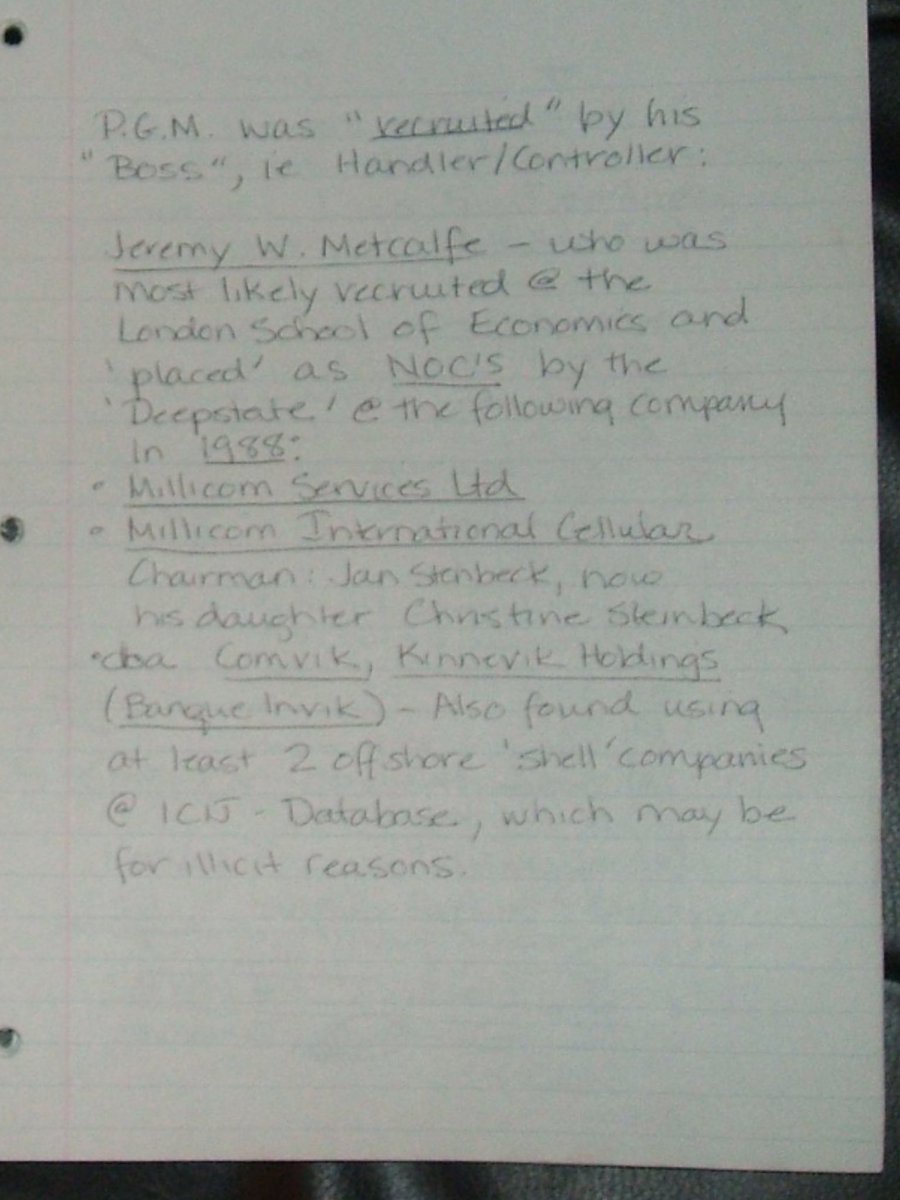 P.G.M. was "recruited" by his
"Boss", ie Handler/Controller:
Jeremy W. Metcalfe – who was
most likely recruited @ the
London School of Economics and
'placed' as NOC'S by the
'Deepstate' @ the following company
In 1988:
• Millicom Services Ltd
• Millicom International Cellular
Chairman: Jan Stenbeck, now
his daughter Christine Steinbeck
•dba Comvik, Kinnevik Holdings
(Banque Invik) – Also found using
at least 2 offshore 'shell' companies
@ ICIJ - Database, which may be
for illicit reasons.